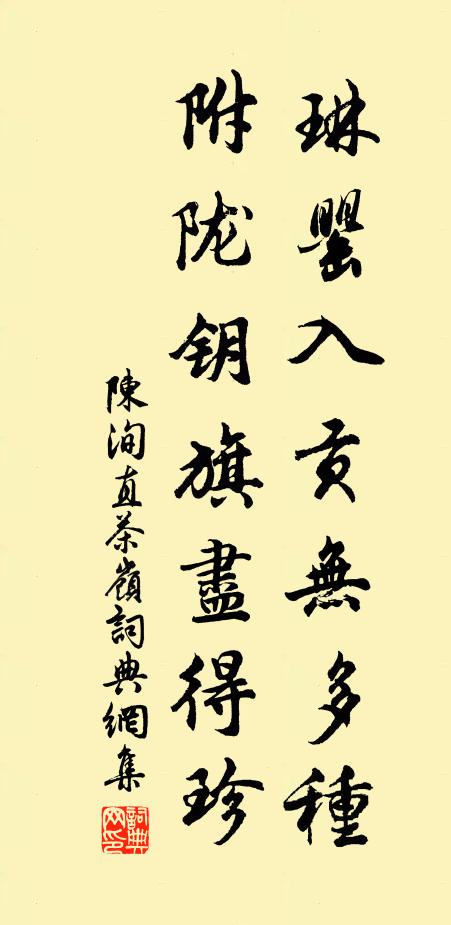 琳罌入贡無多種
附陇钥旗盡得珍
陳洵直茶嶺詞典網集
詞典网印